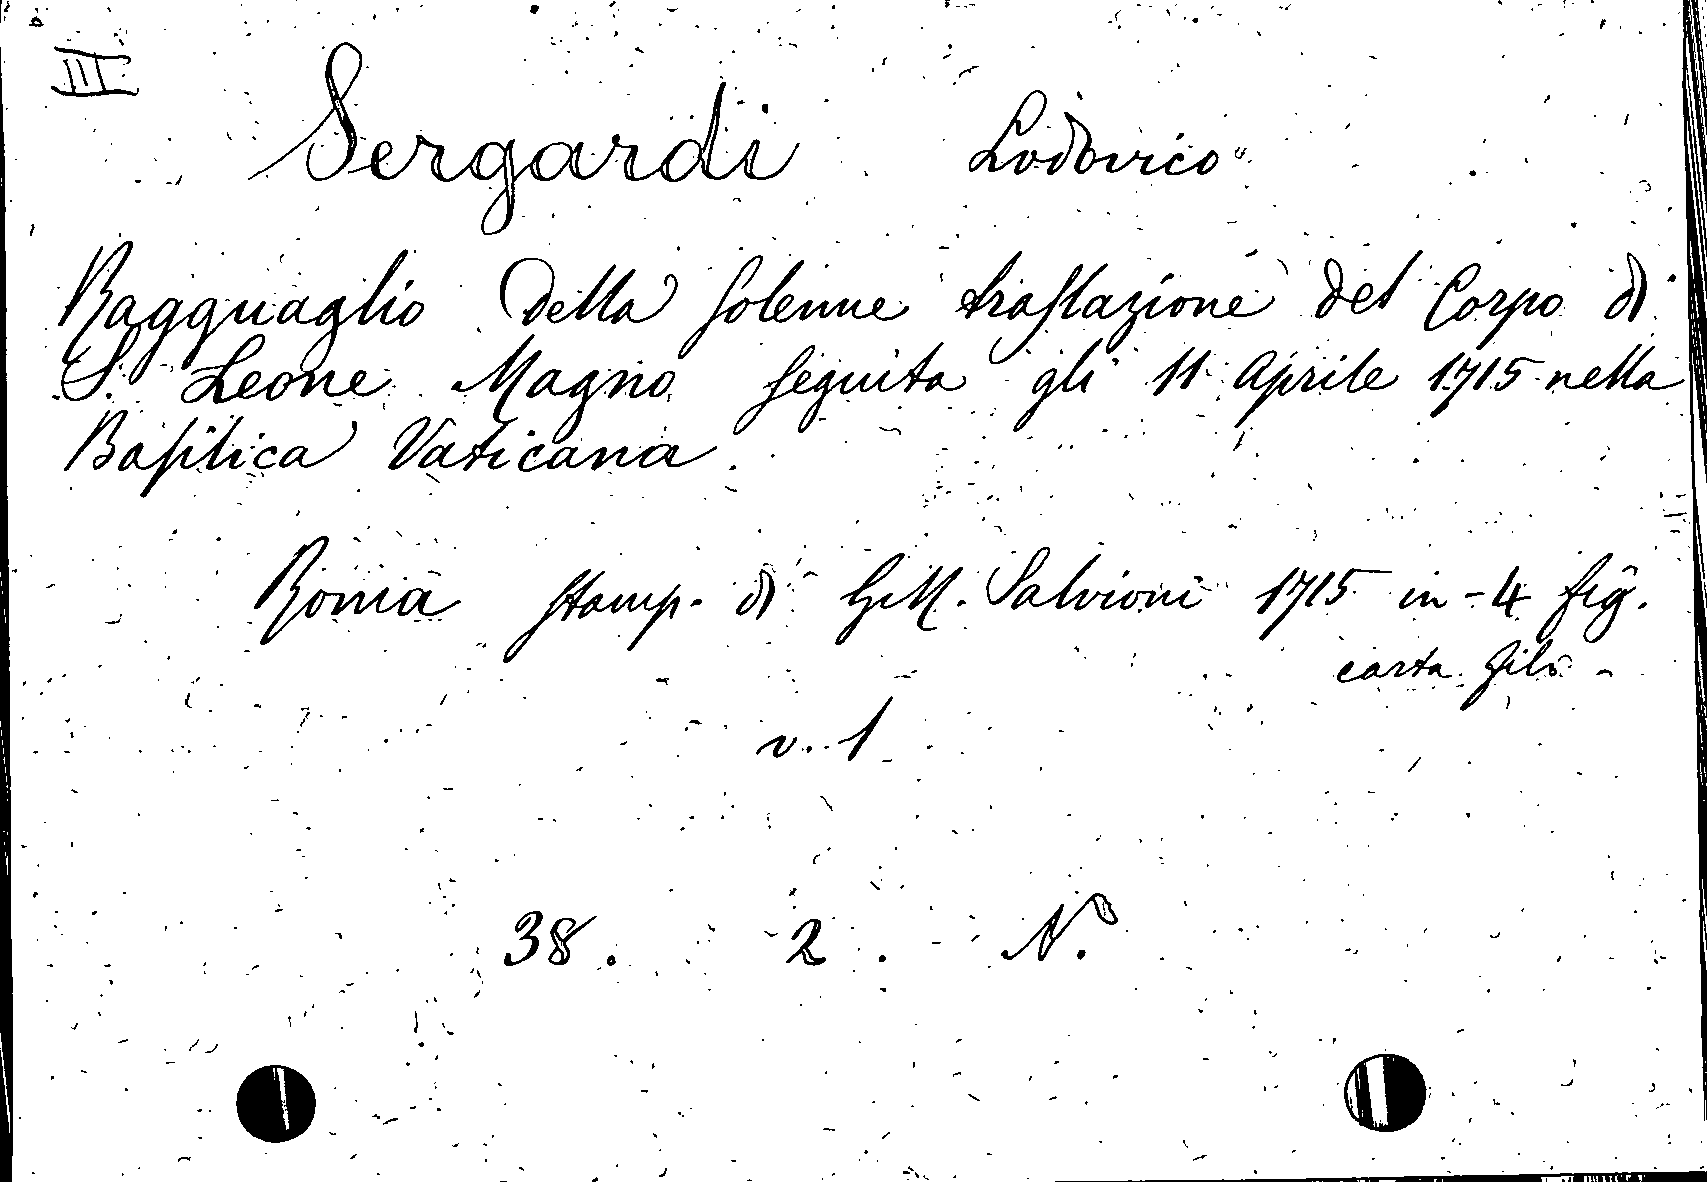 III
Sergardi Lodovico
Ragguaglio della solenne traslazione del Corpo di
S. Leone Magno seguita gli 11 Aprile 1715 nella
Basilica Vaticana.
Roma stamp. di G. M. Salvioni 1715 in-4 fig.
carta filo -
v. 1
38. 2. N.